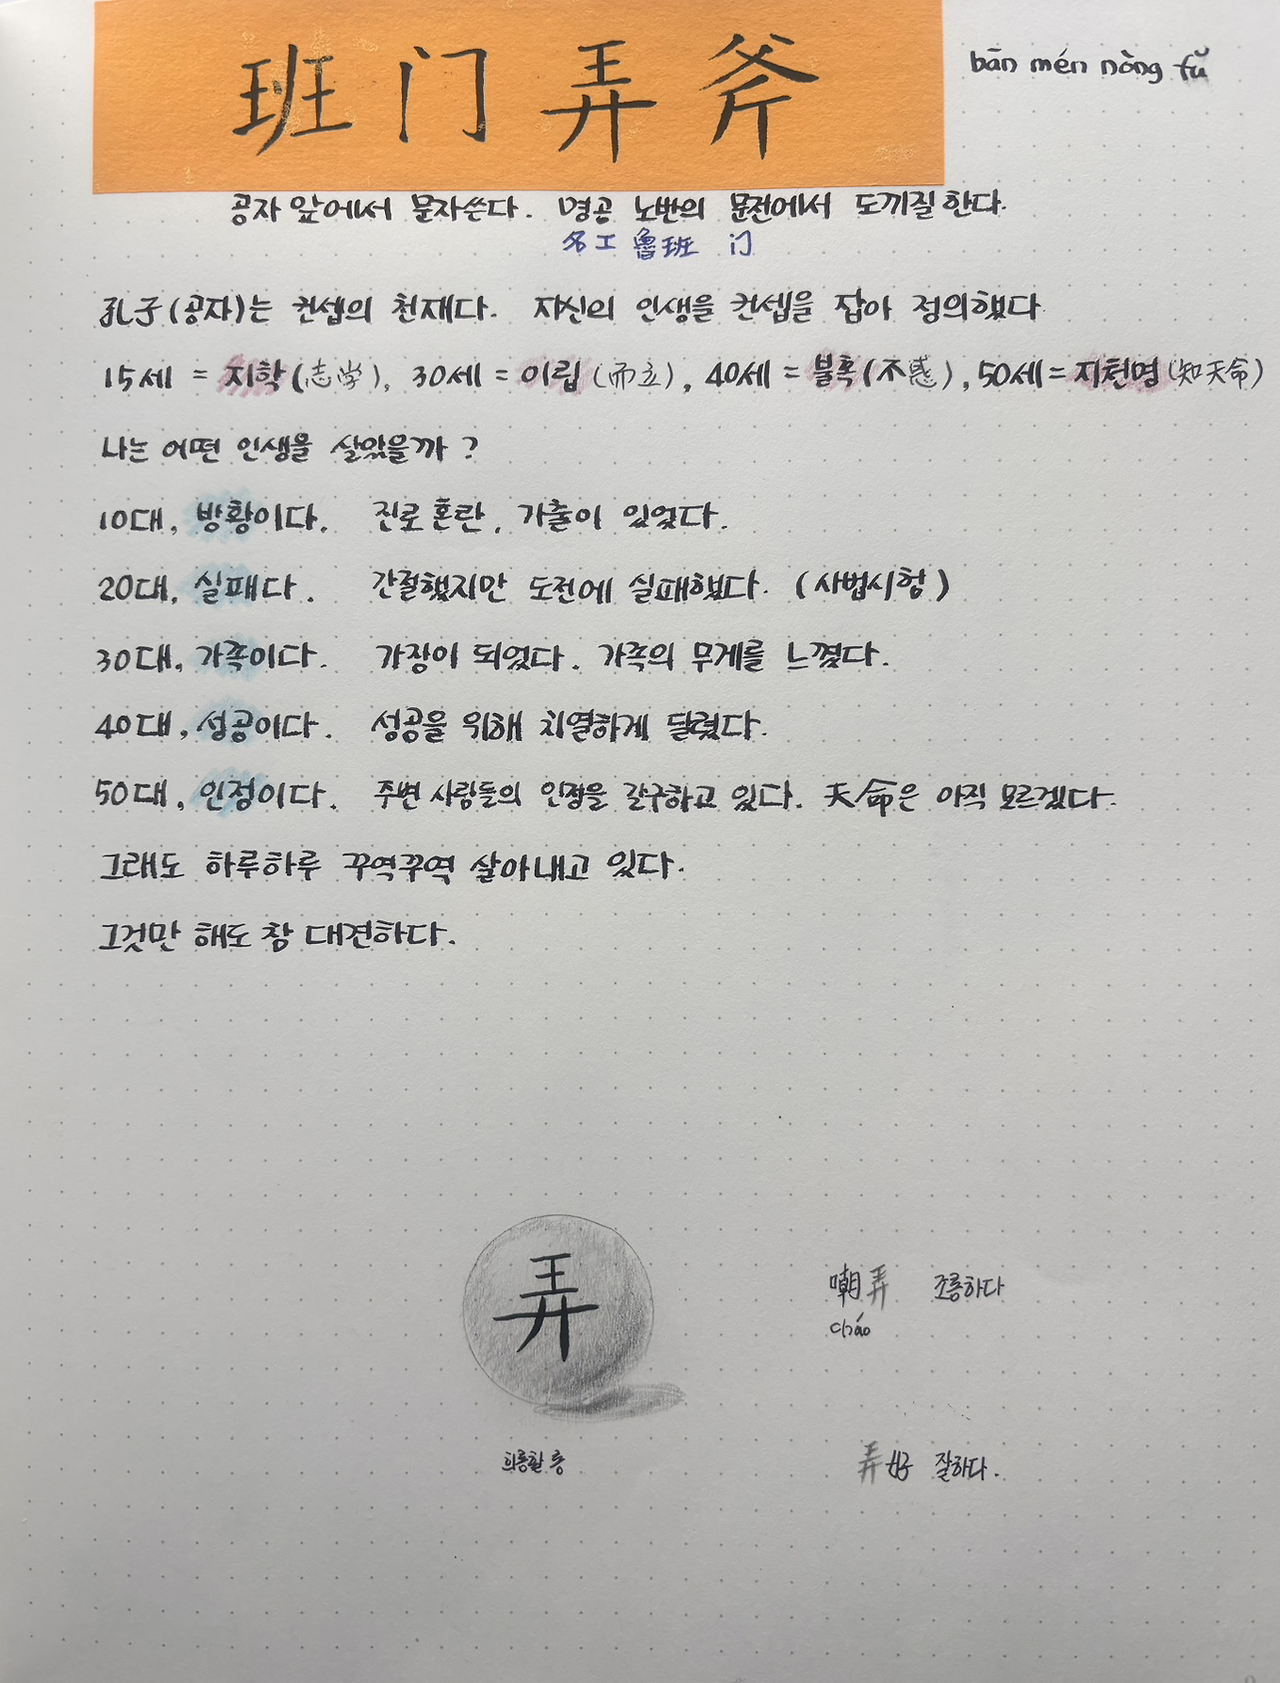 班门弄斧
bān mén nòng fǔ
공자 앞에서 문자쓴다. 명공 노반의 문전에서 도끼질한다.
名工 魯班 门
孔子(공자)는 컨셉의 천재다. 자신의 인생을 컨셉을 잡아 정의했다
15세 = 지학(志学), 30세 = 이립(而立), 40세 = 불혹(不惑), 50세 = 지천명(知天命)
나는 어떤 인생을 살았을까?
10대, 방황이다. 진로 혼란, 가출이 있었다.
20대, 실패다. 간절했지만 도전에 실패했다. (사법시험)
30대, 가족이다. 가장이 되었다. 가족의 무게를 느꼈다.
40대, 성공이다. 성공을 위해 치열하게 달렸다.
50대, 인정이다. 주변 사람들의 인정을 갈구하고 있다. 天命은 아직 모르겠다.
그래도 하루하루 꾸역꾸역 살아내고 있다.
그것만 해도 참 대견하다.
弄
희롱할 롱
嘲弄 조롱하다
cháo
弄好 잘하다.